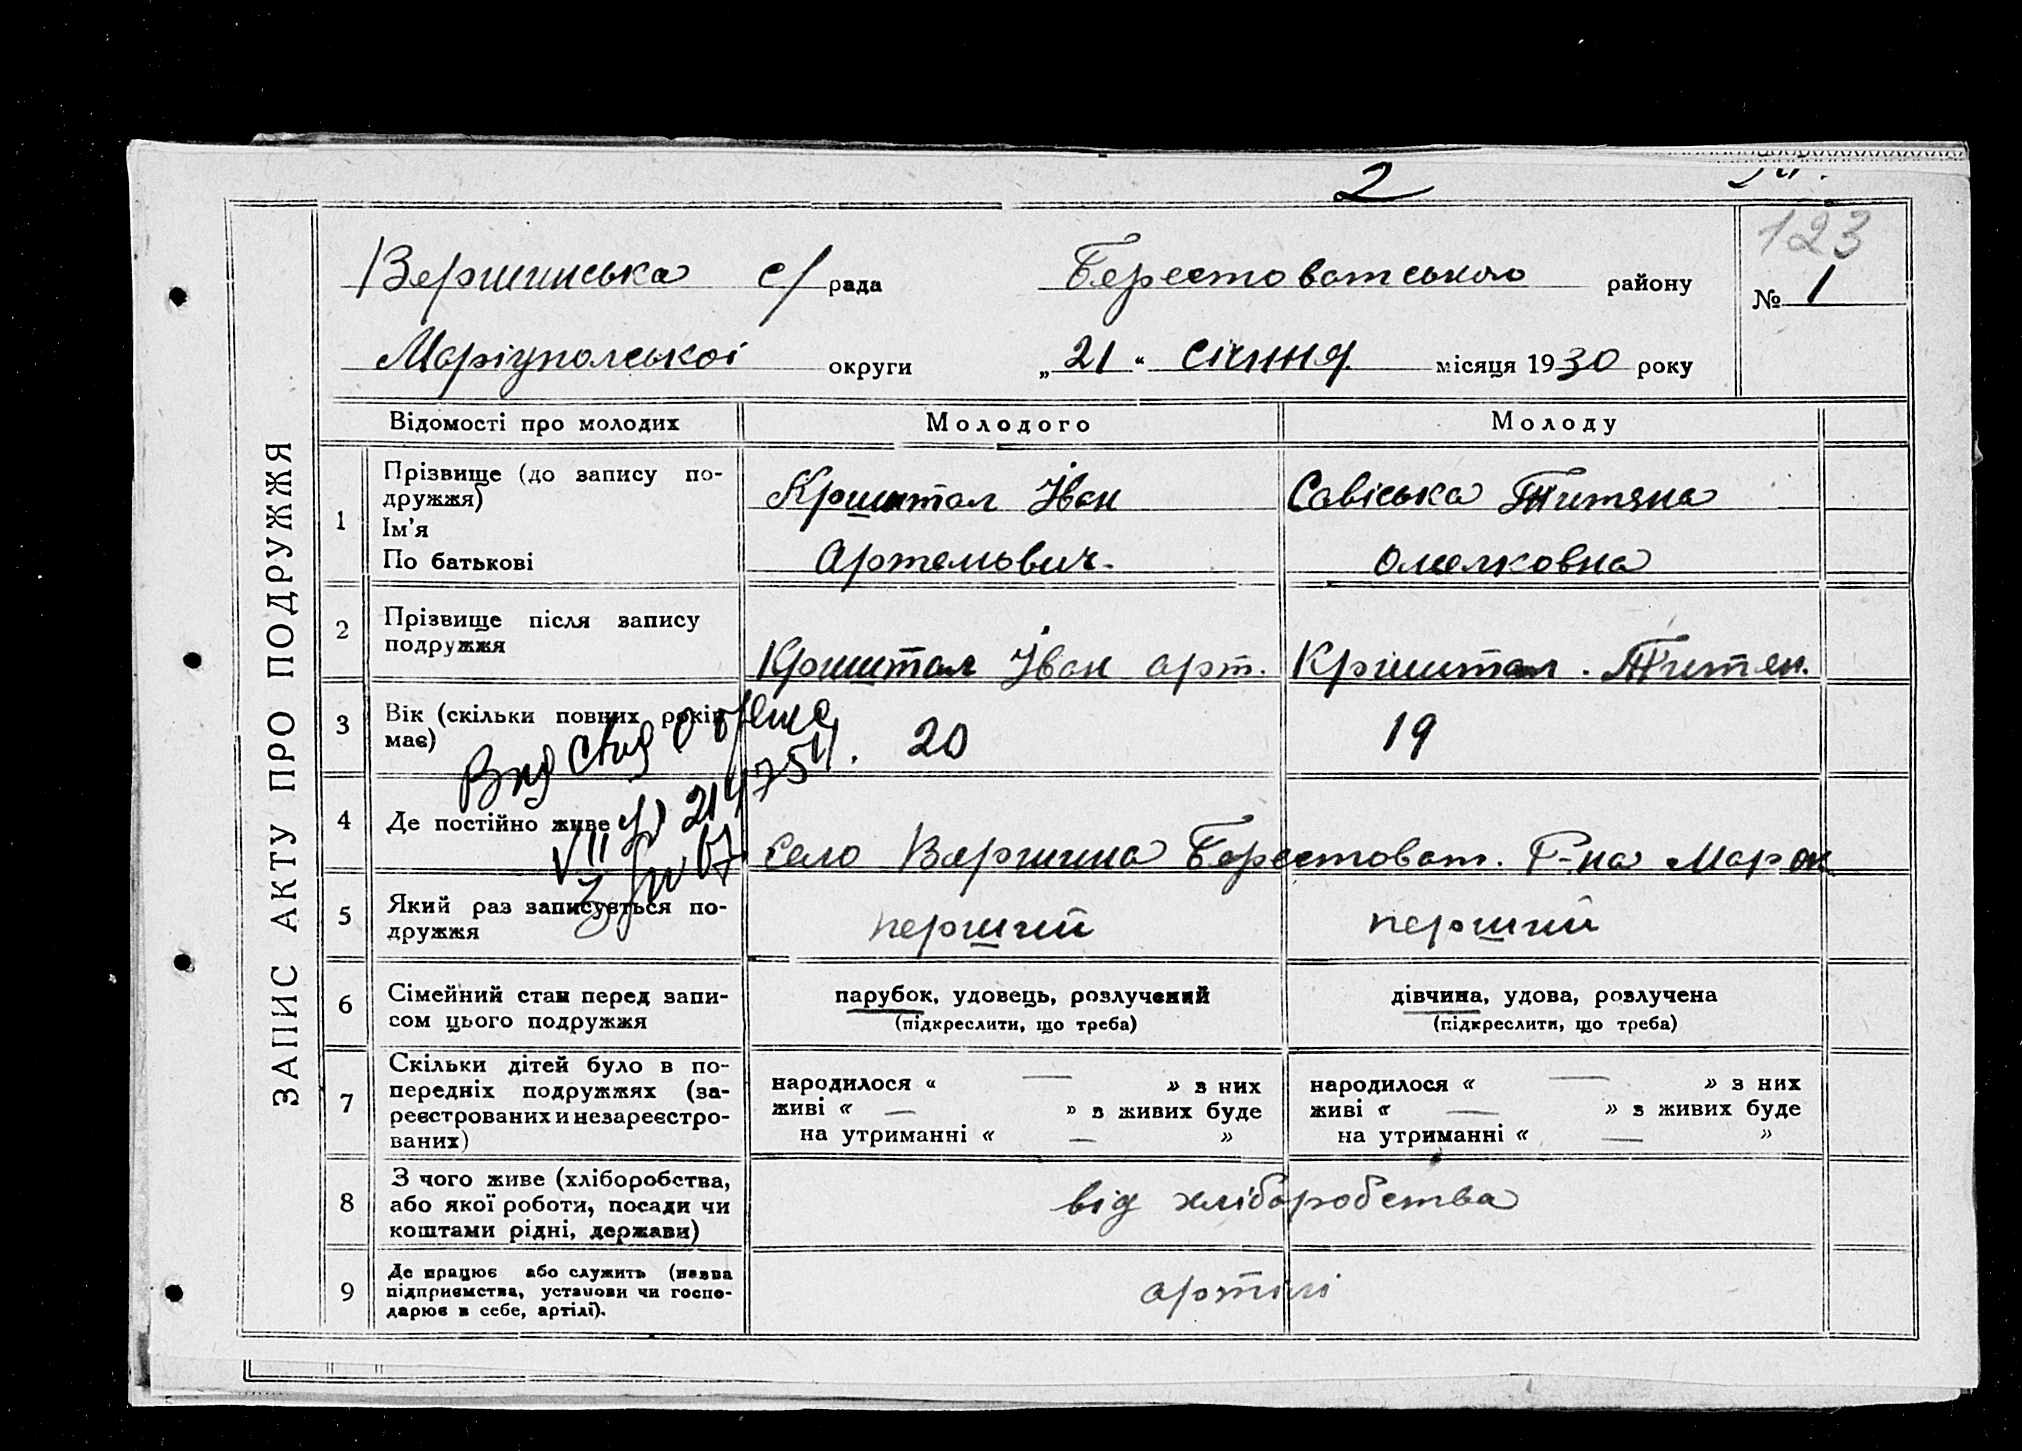 2
123
Вершинська с/рада Берестоватського району
№ 1
Маріупольської округи „21“ Січння місяця 1930 року
ЗАПИС АКТУ ПРО ПОДРУЖЖЯ
Відомості про молодих Молодого Молоду
1 Прізвище (до запису по-
дружжя)
Ім'я
По батькові
Криштал Іван
Артемович
Савіська Титяна
Омелковна
2 Прізвище після запису
подружжя
Криштал Іван арт.
Криштал. Титян.
3 Вік (скільки повних років
має)
20 19
4 Де постійно живе
село Вершина Берестоват. Р-на Мар ок
5 Який раз записується по-
дружжя
перший перший
6 Сімейний стан перед запи-
сом цього подружжя
парубок, удовець, розлучений
(підкреслити, що треба)
дівчина, удова, розлучена
(підкреслити, що треба)
7 Скільки дітей було в по-
передніх подружжях (за-
реєстрованих и незареєстро-
ваних)
народилося « — » з них
живі « — » з живих буде
на утриманні « — »
народилося « — » з них
живі « — » з живих буде
на утриманні « — »
8 З чого живе (хліборобства,
або якої роботи, посади чи
коштами рідні, держави)
від хліборобства
9 Де працює або служить (назва
підприємства, установи чи госпо-
дарює в себе, артілі).
артілі